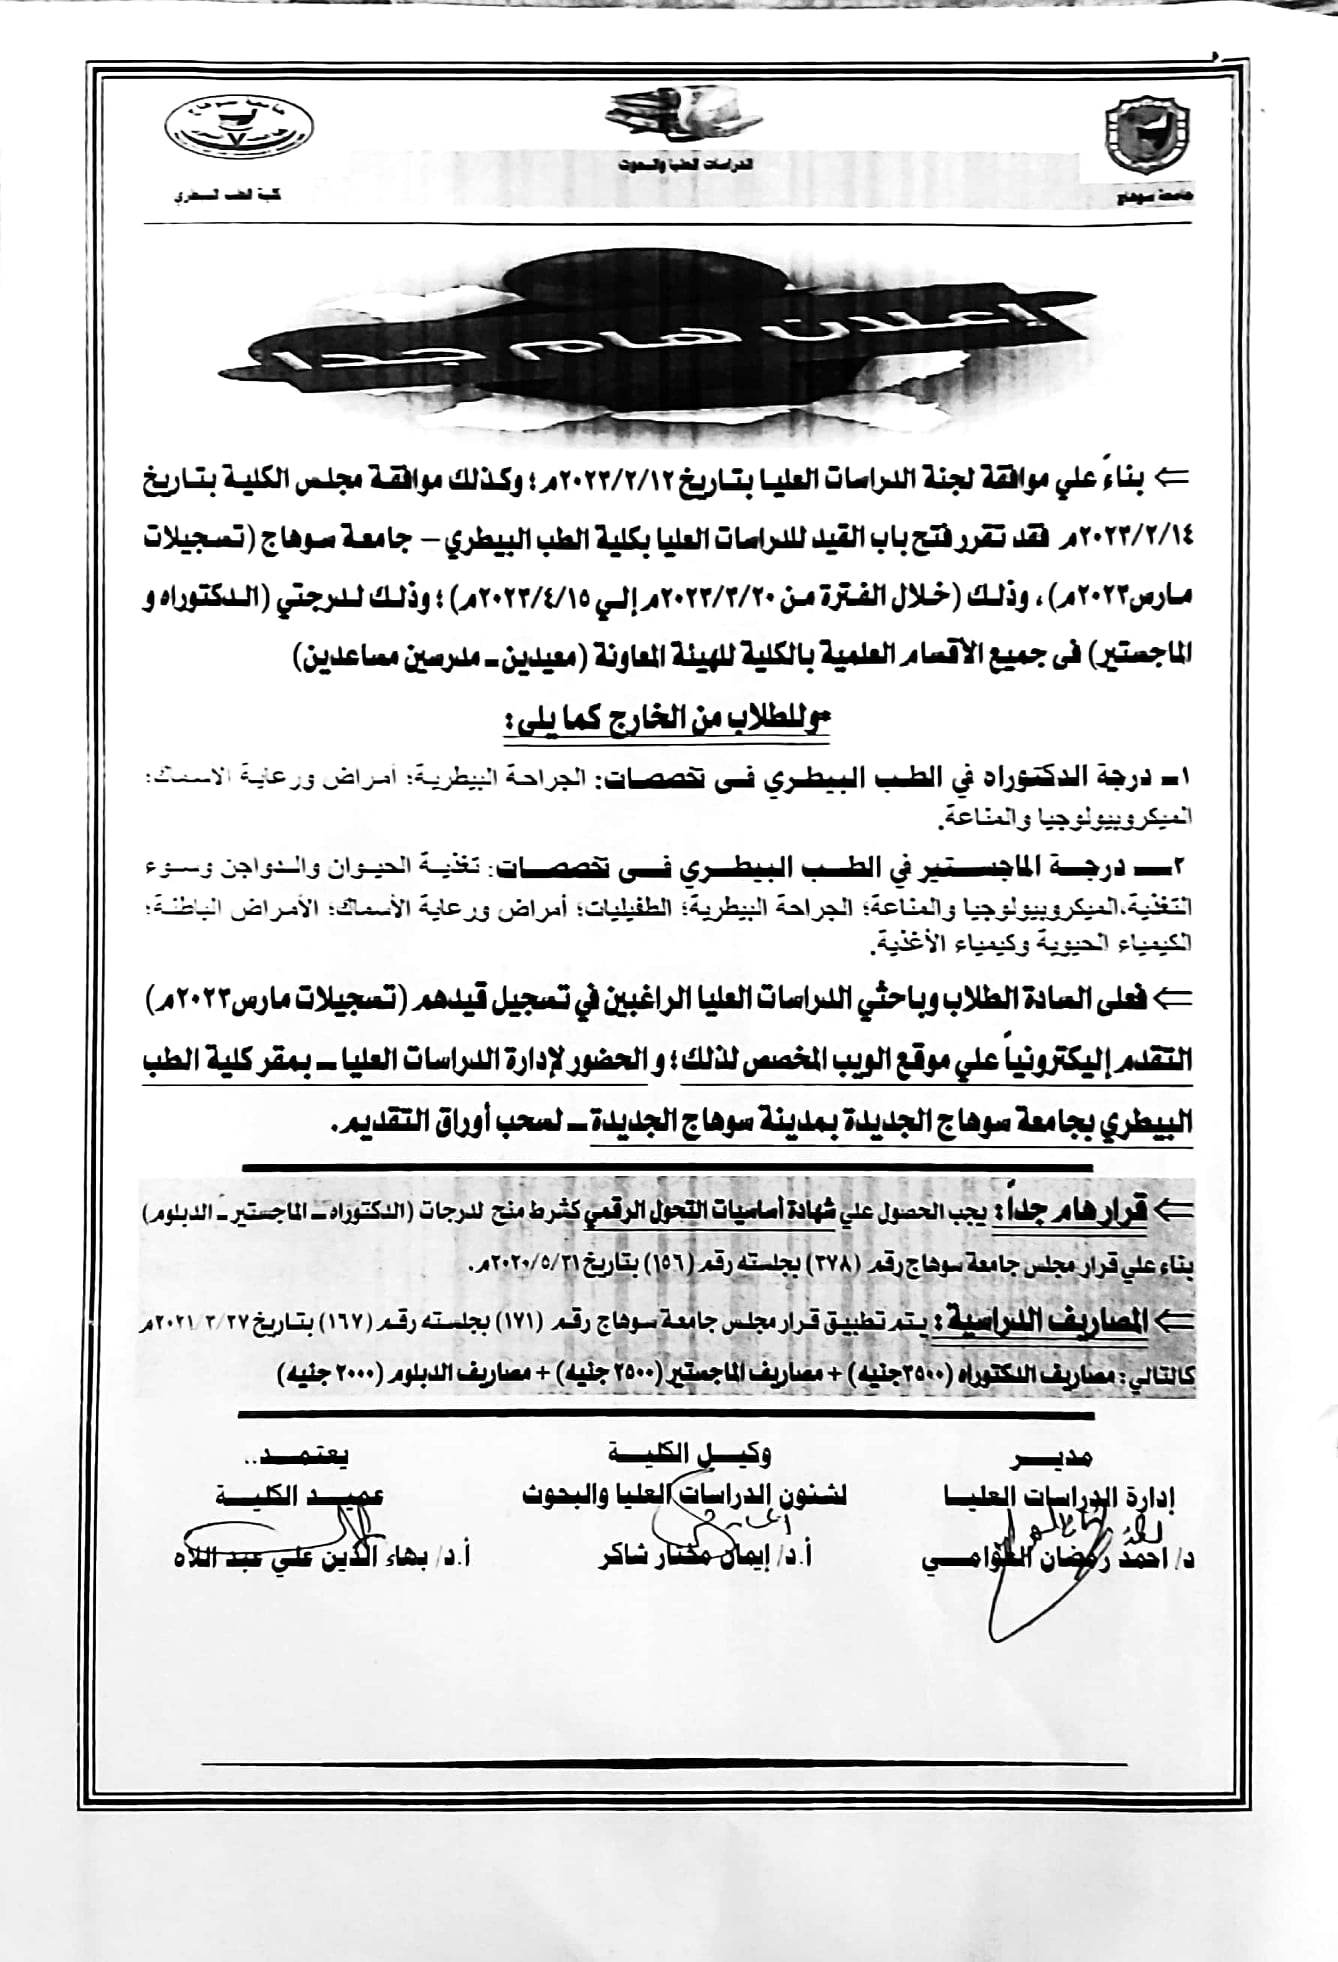 جامعة سوهاج
الدراسات العليا والبحوث
كلية الطب البيطري
إعلان هام جدا
⇐ بناءً علي موافقة لجنة الدراسات العليا بتاريخ ٢٠٢٣/٢/١٢م؛ وكذلك موافقة مجلس الكلية بتاريخ
٢٠٢٣/٢/١٤م فقد تقرر فتح باب القيد للدراسات العليا بكلية الطب البيطري – جامعة سوهاج (تسجيلات
مارس٢٠٢٣م)، وذلك (خلال الفترة من ٢٠٢٣/٣/٢٠م إلي ٢٠٢٣/٤/١٥م)؛ وذلك لدرجتي (الدكتوراه و
الماجستير) فى جميع الأقسام العلمية بالكلية للهيئة المعاونة (معيدين ــ مدرسين مساعدين)
*وللطلاب من الخارج كما يلى:
١ــ درجة الدكتوراه في الطب البيطري فى تخصصات: الجراحة البيطرية؛ أمراض ورعاية الاسماك؛
الميكروبيولوجيا والمناعة.
٢ــ درجة الماجستير في الطب البيطري فى تخصصات: تغذية الحيوان والدواجن وسوء
التغذية،الميكروبيولوجيا والمناعة؛ الجراحة البيطرية؛ الطفيليات؛ أمراض ورعاية الأسماك؛ الأمراض الباطنة؛
الكيمياء الحيوية وكيمياء الأغذية.
⇐ فعلى السادة الطلاب وباحثي الدراسات العليا الراغبين في تسجيل قيدهم (تسجيلات مارس٢٠٢٣م)
التقدم إليكترونياً علي موقع الويب المخصص لذلك؛ و الحضور لإدارة الدراسات العليا ــ بمقر كلية الطب
البيطري بجامعة سوهاج الجديدة بمدينة سوهاج الجديدة ــ لسحب أوراق التقديم.
⇐ قرار هام جداً: يجب الحصول علي شهادة أساسيات التحول الرقمي كشرط منح لدرجات (الدكتوراه ــ الماجستير ــ الدبلوم)
بناء علي قرار مجلس جامعة سوهاج رقم (٣٧٨) بجلسته رقم (١٥٦) بتاريخ ٢٠٢٠/٥/٣١م.
⇐ المصاريف الدراسية: يتم تطبيق قرار مجلس جامعة سوهاج رقم (١٧١) بجلسته رقم (١٦٧) بتاريخ ٢٠٢١/٣/٢٧م
كالتالي: مصاريف الدكتوراه (٣٥٠٠جنيه) + مصاريف الماجستير (٢٥٠٠ جنيه) + مصاريف الدبلوم (٢٠٠٠ جنيه)
مديـــر وكيــل الكليــة يعتمــد..
إدارة الدراسات العليـا لشئون الدراسات العليا والبحوث عميــد الكليــة
د/ احمد رمضان العوامـــي أ.د/ إيمان مختار شاكر أ.د/ بهاء الدين علي عبد اللاه